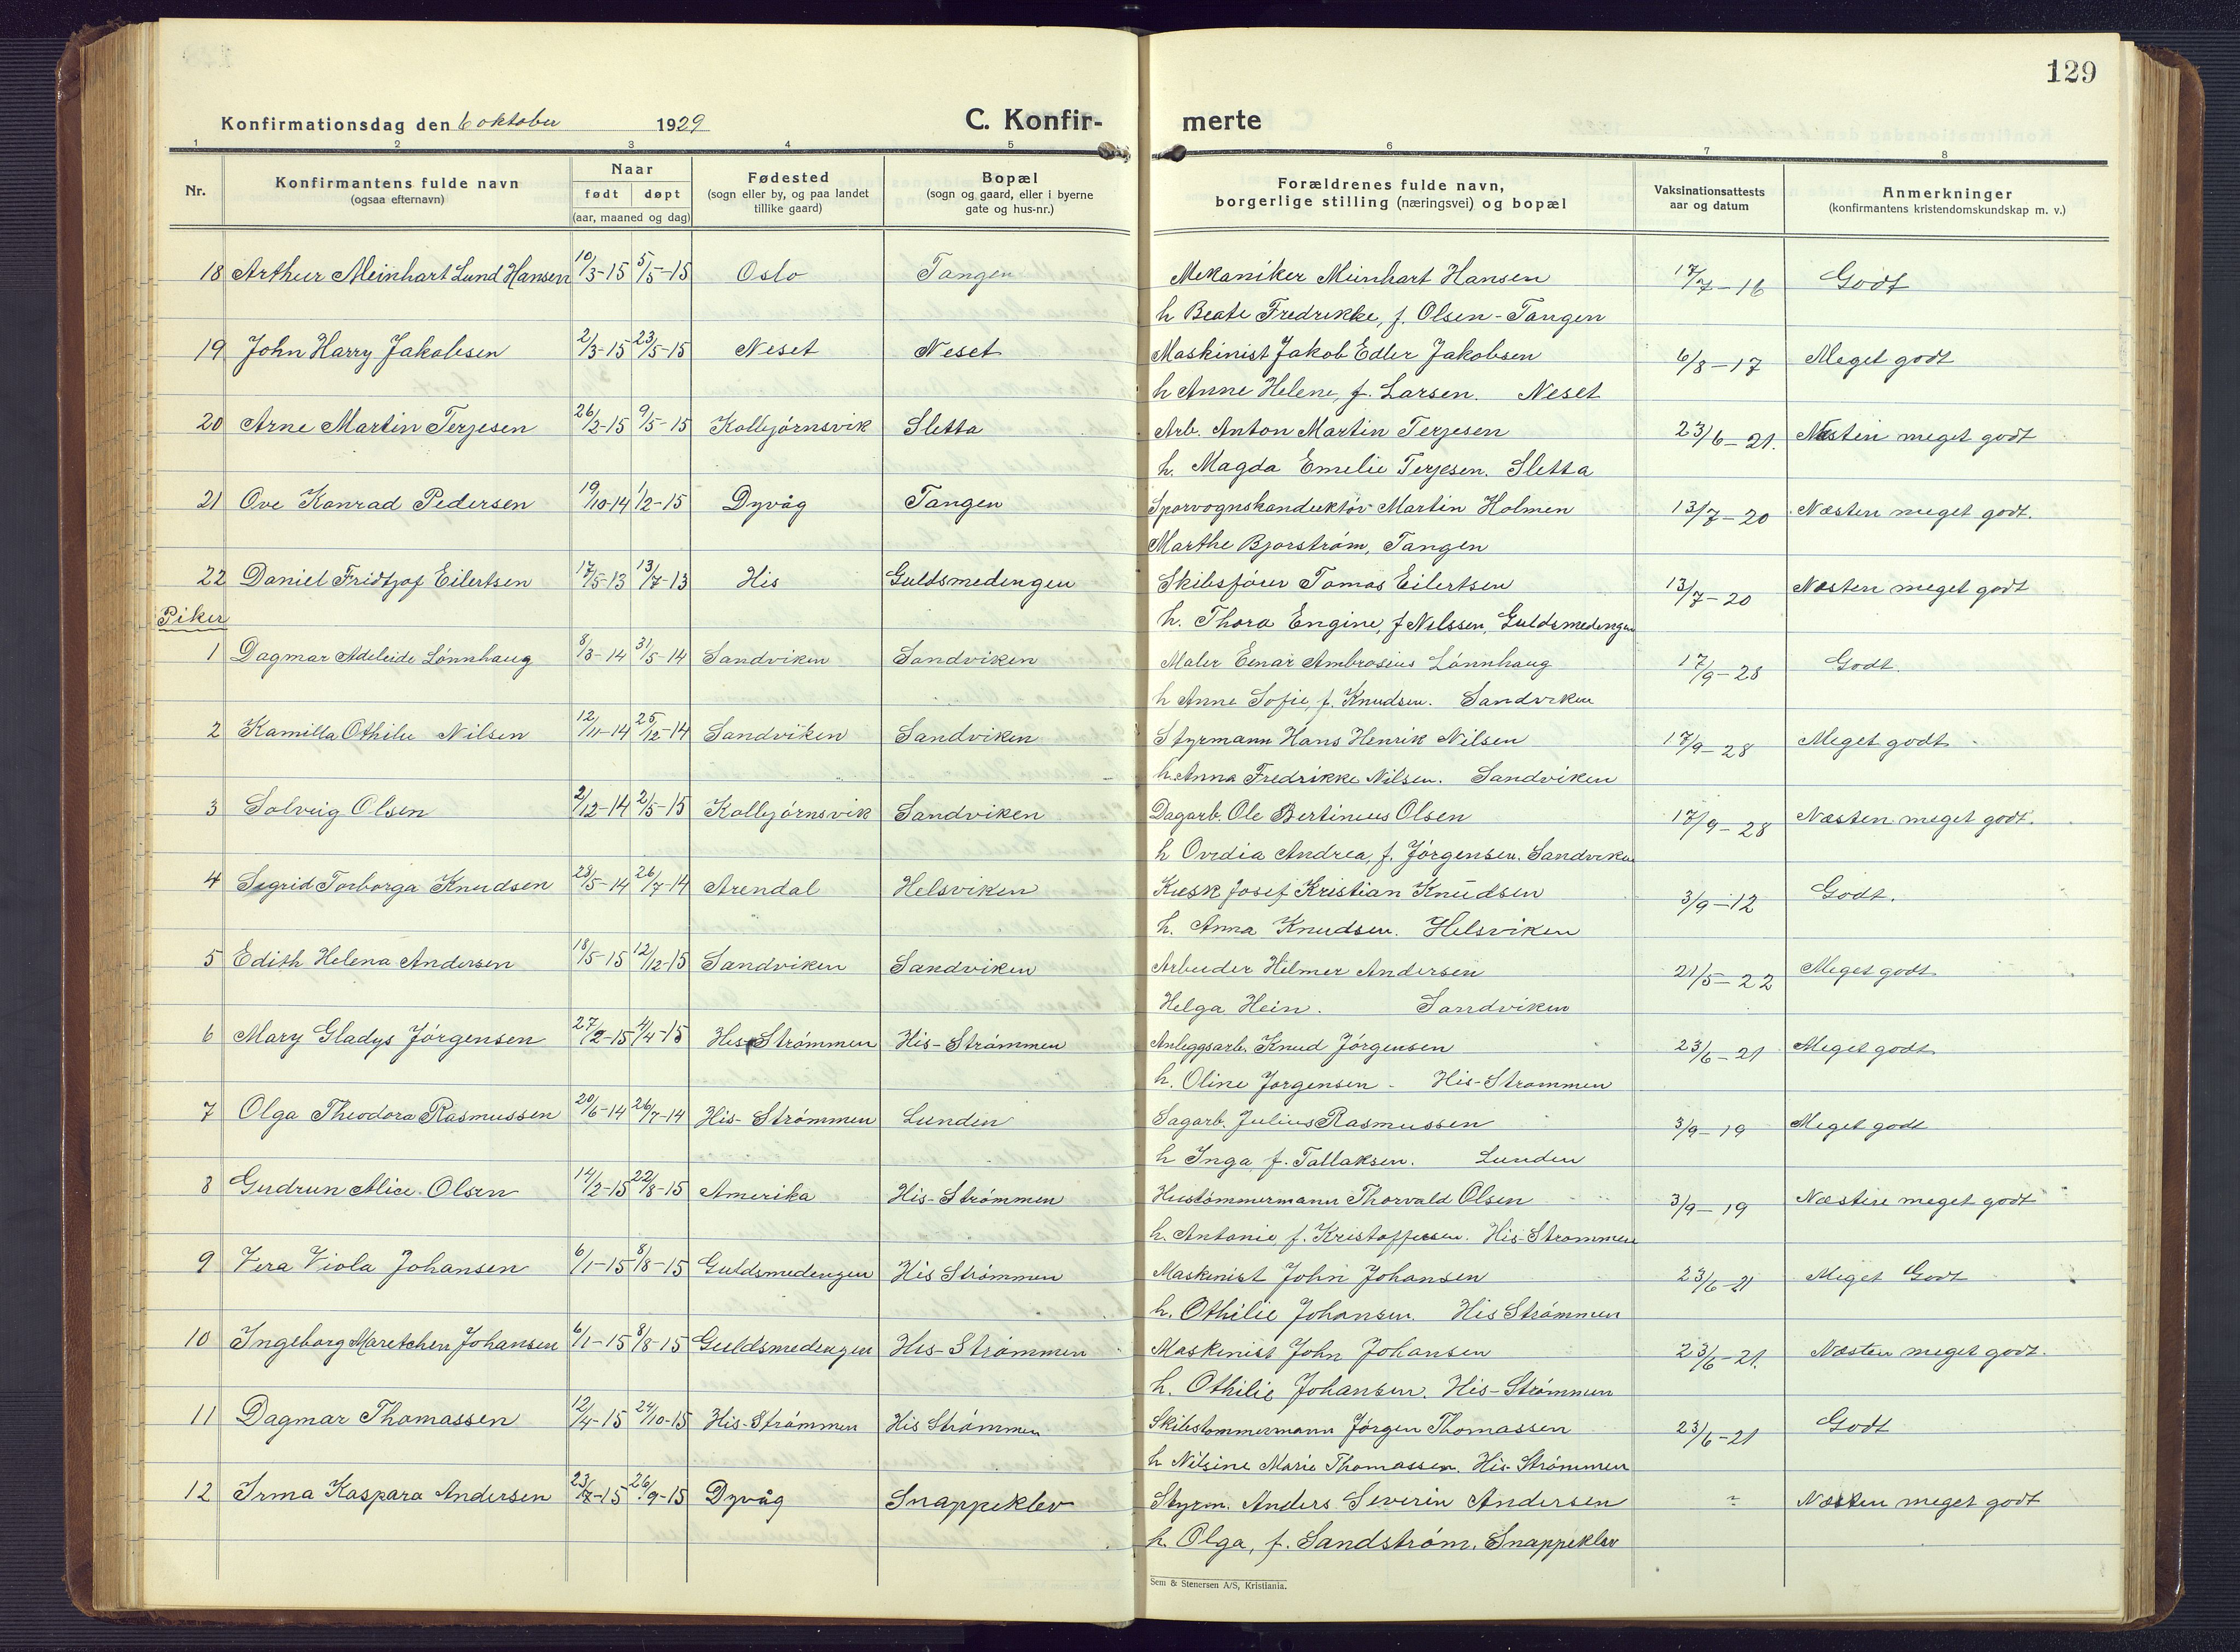 129
Konfirmationsdag den 6 oktober 1929
C. Konfir- merte
1 2 3 4 5 6 7 8
Nr.
Konfirmantens fulde navn
(ogsaa efternavn)
Naar
født døpt
(aar, maaned og dag)
Fødested
(sogn eller by, og paa landet
tillike gaard)
Bopæl
(sogn og gaard, eller i byerne
gate og hus-nr.)
Forældrenes fulde navn,
borgerlige stilling (næringsvei) og bopæl
Vaksinationsattests
aar og datum
Anmerkninger
(konfirmantens kristendomskundskap m. v.)
18 Arthur Meinhart Lund Hansen 10/3-15 5/5-15 Oslo Tangen Mekaniker Meinhart Hansen 17/7-16 Godt
h Beate Fredrikke, f. Olsen - Tangen
19 John Harry Jakobsen 2/3-15 23/5-15 Neset Neset Maskinist Jakob Edler Jakobsen 6/8-17 Meget godt
h Anne Helene, f. Larsen. Neset
20 Arne Martin Terjesen 26/2-15 9/5-15 Kolbjørnsvik Sletta Arb. Anton Martin Terjesen 23/6-21. Næsten meget godt
h. Magda Emelie Terjesen. Sletta
21 Ove Konrad Pedersen 19/10-14 1/2-15 Dyvåg Tangen Sporvognskonduktør Martin Holmen 13/7-20 Næsten meget godt.
Marthe Bjorstrøm, Tangen
22 Daniel Fridtjof Eilertsen 17/5-13 13/7-13 His Guldsmedengen Skibsfører Tomas Eilertsen 13/7-20 Næsten meget godt
h. Thora Engine, f Nilssen, Guldsmedengen
Piker
1 Dagmar Adeleide Lønnhaug 8/3-14 31/5-14 Sandviken Sandviken Maler Einar Ambrosius Lønnhaug 17/9-28 Godt.
h Anne Sofie, f. Knudsen. Sandviken
2 Kamilla Othilie Nilsen 12/11-14 25/12-14 Sandviken Sandviken Styrmann Hans Henrik Nilsen 17/9-28 Meget godt
h. Anna Fredrikke Nilsen. Sandviken
3 Solveig Olsen 2/12-14 2/5-15 Kolbjørnsvik Sandviken Dagarb. Ole Bertinius Olsen 17/9-28 Næsten meget godt.
h Ovedia Andrea, f. Jørgensen. Sandviken
4 Sigrid Torborga Knudsen 23/5-14 26/7-14 Arendal Helsviken Kusk Josef Kristian Knudsen 3/9-12 Godt.
h. Anna Knudsen. Helsviken
5 Edith Helena Andersen 18/5-15 12/12-15 Sandviken Sandviken Arbeider Hilmer Andersen 21/5-22 Meget godt
Helga Hein. Sandviken
6 Mary Gladys Jørgensen 27/2-15 4/4-15 His-Strømmen His-Strømmen Anleggsarb. Knud Jørgensen 23/6-21 Meget godt
h. Oline Jørgensen - His-Strømmen
7 Olga Theodora Rasmussen 20/6-14 26/7-14 His-Strømmen Lunden Sagarb. Julius Rasmussen 3/9-19 Meget godt
h Inga, f. Tallaksen. Lunden
8 Gudrun Alice Olsen 14/2-15 22/8-15 Amerika His-Strømmen Hustømmermann Thorvald Olsen 3/9-19 Næsten meget godt
h. Antonie, f. Kristoffersen. His-Strømmen
9 Vera Viola Johansen 6/1-15 8/8-15 Guldsmedengen His Strømmen Maskinist John Johansen 23/6-21 Meget Godt
h. Othilie Johansen. His Strømmen
10 Ingeborg Maretchen Johansen 6/1-15 8/8-15 Guldsmedengen His-Strømmen Maskinist John Johansen 23/6-21. Næsten meget godt.
h. Othilie Johansen. His-Strømmen
11 Dagmar Thomassen 12/4-15 24/10-15 His-Strømmen His Strømmen Skibstømmermann Jørgen Thomassen 23/6-21 Godt
h Nilsine Marie Thomassen. His-Strømmen
12 Irma Kaspara Andersen 23/7-15 26/9-15 Dyvåg Snappeklev Styrm. Anders Severin Andersen ~ Næsten meget godt
h. Olga, f. Sandstrøm. Snappeklev
Sem & Stenersen A/S, Kristiania.